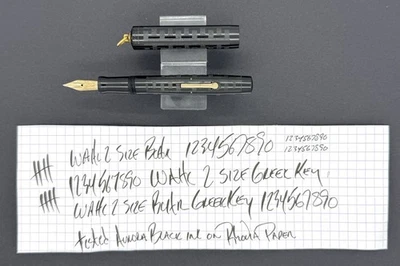 WAHL 2 SIZE BCHR 1234567890 1234567890
1234567890
1234567890 WAHL 2 SIZE GREEK KEY
WAHL 2 SIZE BCHR GREEK KEY 1234567890
tested AURORA BLACK INK on Rhodia PAPER